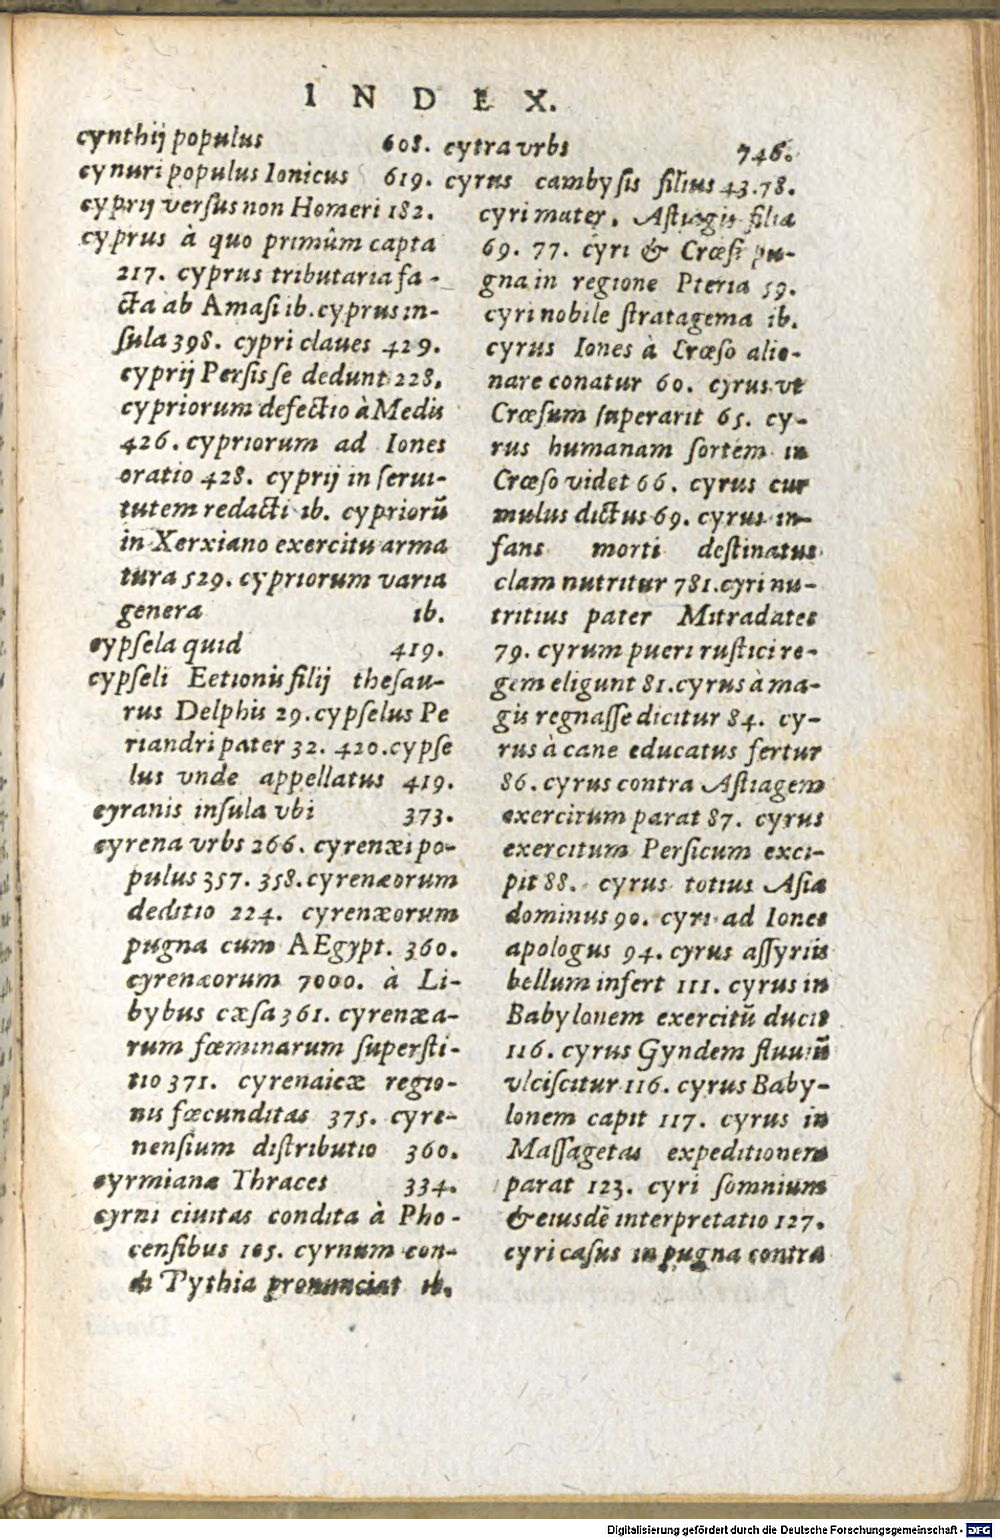 INDEX.
cynthij populus 608.
cynuri populus Ionicus 619.
cyprij versus non Homeri 182.
cyprus à quo primûm capta
217. cyprus tributaria fa-
cta ab Amasi ib. cyprus in-
sula 398. cypri claues 429.
cyprij Persis se dedunt 228.
cypriorum defectio à Medis
426. cypriorum ad Iones
oratio 428. cyprij in serui-
tutem redacti ib. cypriorũ
in Xerxiano exercitu arma
tura 529. cypriorum varia
genera ib.
cypsela quid 419.
cypseli Eetionis filij thesau-
rus Delphis 29. cypselus Pe
riandri pater 32. 420. cypse
lus vnde appellatus 419.
cyranis insula vbi 373.
cyrena vrbs 266. cyrenæi po-
pulus 357. 358. cyrenæorum
deditio 224. cyrenæorum
pugna cum AEgypt. 360.
cyrenæorum 7000. à Li-
bybus cæsa 361. cyrenæa-
rum fœminarum supersti-
tio 371. cyrenaicæ regio-
nis fœcunditas 375. cyre-
nensium distributio 360.
cyrmianæ Thraces 334.
cyrni ciuitas condita à Pho-
censibus 105. cyrnum con-
di Pythia pronunciat ib.
cytra vrbs 746.
cyrus cambysis filius 43. 78.
cyri mater, Astiagis filia
69. 77. cyri & Crœsi pu-
gna in regione Pteria 59.
cyri nobile stratagema ib.
cyrus Iones à Crœso alie-
nare conatur 60. cyrus vt
Crœsum superarit 65. cy-
rus humanam sortem in
Crœso videt 66. cyrus cur
mulus dictus 69. cyrus in-
fans morti destinatus
clam nutritur 781. cyri nu-
tritius pater Mitradates
79. cyrum pueri rustici re-
gem eligunt 81. cyrus à ma-
gis regnasse dicitur 84. cy-
rus à cane educatus fertur
86. cyrus contra Astiagem
exercitum parat 87. cyrus
exercitum Persicum exci-
pit 88. cyrus totius Asiæ
dominus 90. cyri ad Iones
apologus 94. cyrus assyriis
bellum infert 111. cyrus in
Babylonem exercitũ ducit
116. cyrus Gyndem fluuiũ
vlciscitur 116. cyrus Baby-
lonem capit 117. cyrus in
Massagetas expeditionem
parat 123. cyri somnium
& eiusdē interpretatio 127.
cyri casus in pugna contra
Digitalisierung gefördert durch die Deutsche Forschungsgemeinschaft - DFG